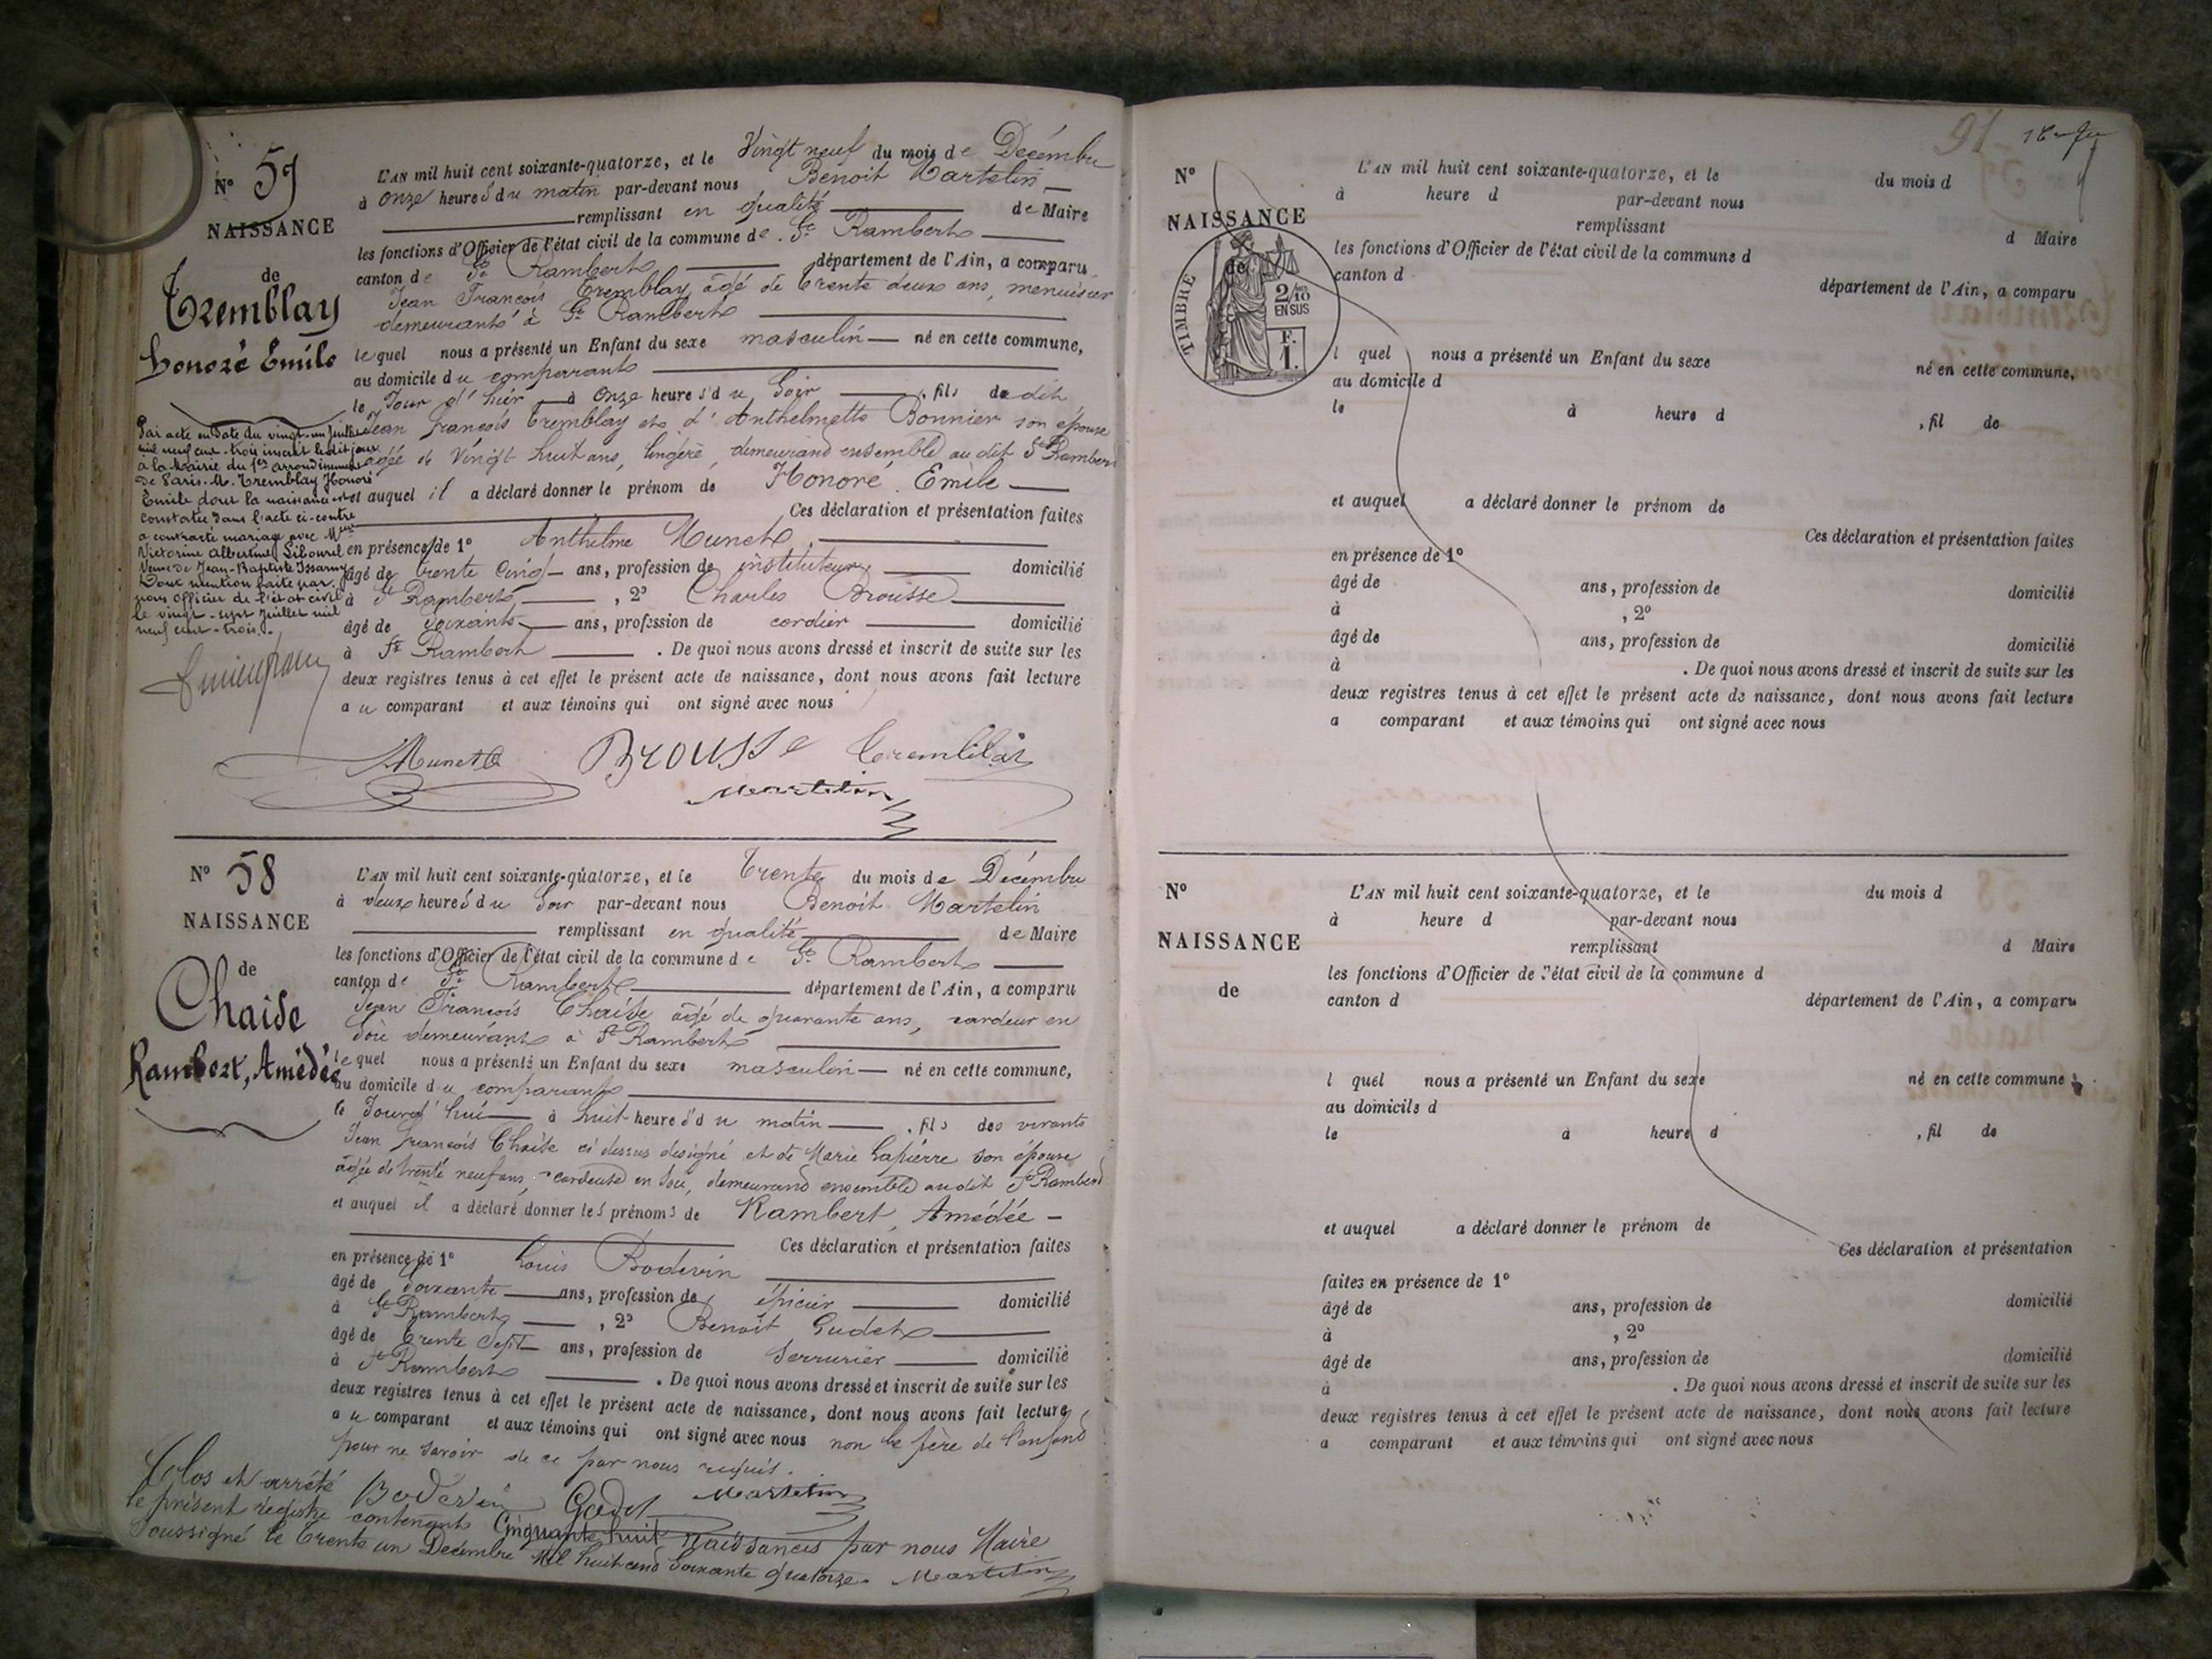 N° 57
NAISSANCE
de
Tremblay
Honoré Emile
L'AN mil huit cent soixante-quatorze, et le Vingt neuf du mois de Décembre
à onze heures du matin par-devant nous Benoit Martelin
remplissant en qualité de Maire
les fonctions d'Officier de l'état civil de la commune de St Rambert
canton de St Rambert département de l'Ain, a comparu
Jean François Tremblay, âgé de trente deux ans, menuisier
demeurant à St Rambert
lequel nous a présenté un Enfant du sexe masculin né en cette commune,
au domicile du comparant
le Jour d'hier à Onze heures du Soir, fils du dit
Jean François Tremblay et d'Anthelmette Bonnier son épouse
agée de Vingt huit ans, lingère, demeurand ensemble au dit St Rambert
et auquel il a déclaré donner le prénom de Honoré Emile
Ces déclaration et présentation faites
en présence de 1° Anthelme Munet
âgé de trente cinq ans, profession de instituteur domicilié
à St Rambert, 2° Charles Brousse
âgé de Soixante ans, profession de cordier domicilié
à St Rambert. De quoi nous avons dressé et inscrit de suite sur les
deux registres tenus à cet effet le présent acte de naissance, dont nous avons fait lecture
au comparant et aux témoins qui ont signé avec nous
Par acte en date du vingt-un juillet
mil neuf cent-trois inscrit ledit jour
à la Mairie du 1er arrondissement
de Paris. M. Tremblay Honoré
Emile dont la naissance est
constatée dans l'acte ci-contre
a contracté mariage avec Mme
Victorine Albertine Libourel
Veuve de Jean-Baptiste Issarny
Dont mention faite par
nous officier de l'état civil
le vingt-sept juillet mil
neuf cent-trois.
Munet Brousse Tremblay
Martelin
N° 58
NAISSANCE
de
Chaise
Rambert, Amédée
L'AN mil huit cent soixante-quatorze, et le Trente du mois de Décembre
à deux heures du Soir par-devant nous Benoit Martelin
remplissant en qualité de Maire
les fonctions d'Officier de l'état civil de la commune de St Rambert
canton de St Rambert département de l'Ain, a comparu
Jean François Chaise agé de quarante ans, cardeur en
Soie demeurant à St Rambert
lequel nous a présenté un Enfant du sexe masculin né en cette commune,
au domicile du comparant
le Jourd'hui à huit heures du matin, fils des vivants
Jean François Chaise ci dessus désigné et de Marie Lapierre son épouse
agée de trente neuf ans, cardeuse en Soie, demeurand ensemble audit St Rambert
et auquel il a déclaré donner les prénoms de Rambert, Amédée
Ces déclaration et présentation faites
en présence de 1° Louis Bodevin
âgé de Soixante ans, profession de épicier domicilié
à St Rambert, 2° Benoit Gudet
âgé de trente Sept ans, profession de Serrurier domicilié
à St Rambert. De quoi nous avons dressé et inscrit de suite sur les
deux registres tenus à cet effet le présent acte de naissance, dont nous avons fait lecture
au comparant et aux témoins qui ont signé avec nous non le père de l'enfand
pour ne savoir de ce par nous requis.
Bodevin Godet Martelin
Clos et arrêté
le présent registre contenant Cinquante huit naissances par nous Maire
Soussigné le trente un Décembre Mil huit cend Soixante quatorze. Martelin
91
N°
NAISSANCE
de
TIMBRE
2/10
EN SUS
F.
1.
L'AN mil huit cent soixante-quatorze, et le du mois d
à heure d par-devant nous
remplissant d Maire
les fonctions d'Officier de l'état civil de la commune d
canton d département de l'Ain, a comparu
l quel nous a présenté un Enfant du sexe né en cette commune,
au domicile d
le à heure d , fil de
et auquel a déclaré donner le prénom de
Ces déclaration et présentation faites
en présence de 1°
âgé de ans, profession de domicilié
à , 2°
âgé de ans, profession de domicilié
à . De quoi nous avons dressé et inscrit de suite sur les
deux registres tenus à cet effet le présent acte de naissance, dont nous avons fait lecture
a comparant et aux témoins qui ont signé avec nous
N°
NAISSANCE
de
L'AN mil huit cent soixante-quatorze, et le du mois d
à heure d par-devant nous
remplissant d Maire
les fonctions d'Officier de l'état civil de la commune d
canton d département de l'Ain, a comparu
l quel nous a présenté un Enfant du sexe né en cette commune
au domicile d
le à heure d , fil de
et auquel a déclaré donner le prénom de
Ces déclaration et présentation
faites en présence de 1°
âgé de ans, profession de domicilié
à , 2°
âgé de ans, profession de domicilié
à . De quoi nous avons dressé et inscrit de suite sur les
deux registres tenus à cet effet le présent acte de naissance, dont nous avons fait lecture
a comparant et aux témoins qui ont signé avec nous